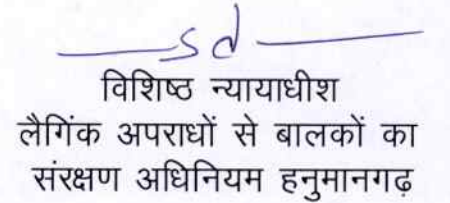 sd
विशिष्ठ न्यायाधीश
लैगिंक अपराधों से बालकों का
संरक्षण अधिनियम हनुमानगढ़